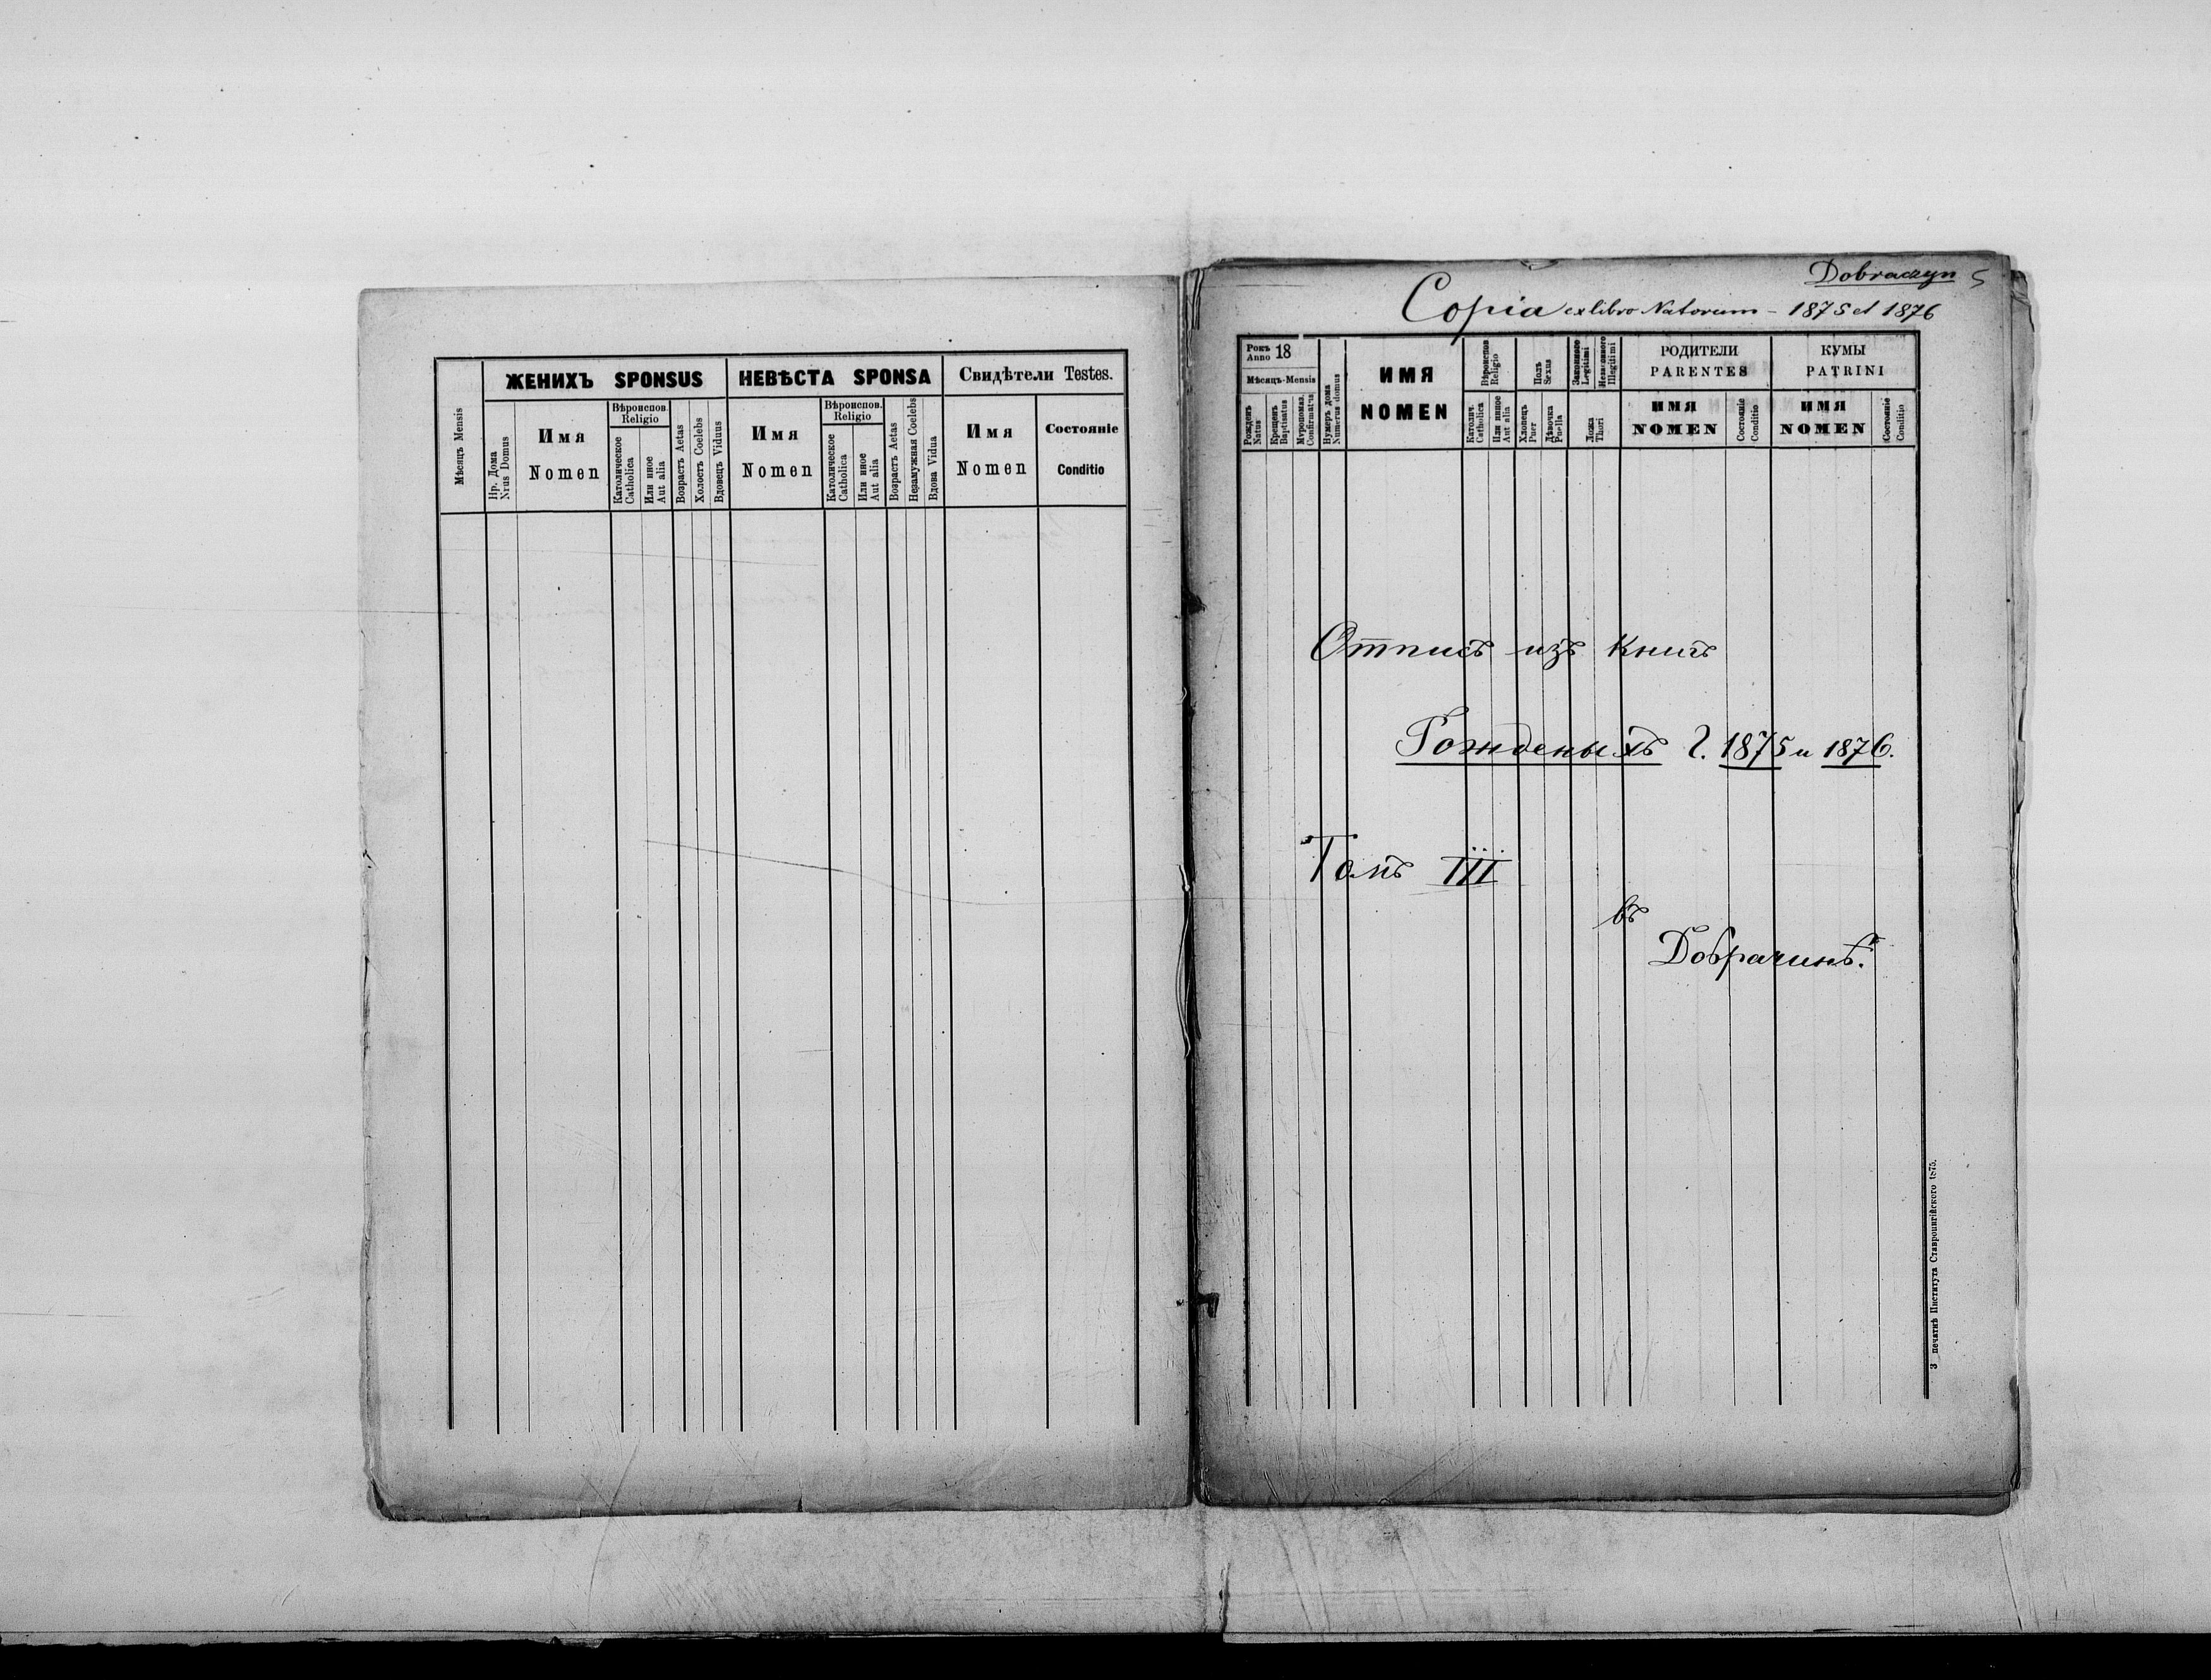 ЖЕНИХЪ SPONSUS
НЕВѢСТА SPONSA
Свидѣтели Testes.
Мѣсяцъ Mensis
Нр. Дома
Nrus Domus
Имя
Nomen
Вѣроиспов.
Religio
Католическое
Catholica
Или иное
Aut alia
Возрастъ Aetas
Холостъ Coelebs
Вдовецъ Viduus
Имя
Nomen
Вѣроиспов.
Religio
Католическое
Catholica
Или иное
Aut alia
Возрастъ Aetas
Незамужная Coelebs
Вдова Vidua
Имя
Nomen
Состояніе
Conditio
Dobraczyn 5
Copia ex libro Natorum - 1875 et 1876
Рокъ
Anno 18
Мѣсяцъ-Mensis
Рожденъ
Natus
Крещенъ
Baptisatus
Муропомаз.
Confirmatus
Нумеръ дома
Numerus domus
ИМЯ
NOMEN
Вѣроиспов
Religio
Католич.
Catholica
Или инное
Aut alia
Полъ
Sexus
Хлопецъ
Puer
Дѣвочка
Puella
Законного
Legitimi
Незаконного
Illegitimi
Ложа
Thori
РОДИТЕЛИ
PARENTES
ИМЯ
NOMEN
Состояніе
Conditio
КУМЫ
PATRINI
ИМЯ
NOMEN
Состояніе
Conditio
Отписъ изъ книгъ
Рожденыхъ г. 1875 и 1876.
Томъ III
въ
Добрачинѣ.
З печатнѣ Института Ставропигійского 1875.